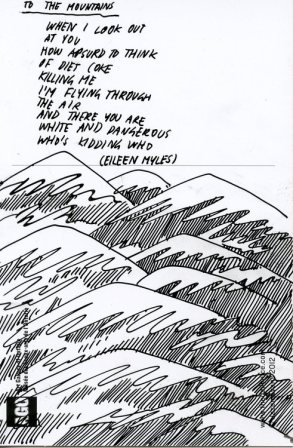 TO THE MOUNTAINS
WHEN I LOOK OUT
AT YOU
HOW ABSURD TO THINK
OF DIET COKE
KILLING ME
I'M FLYING THROUGH
THE AIR
AND THERE YOU ARE
WHITE AND DANGEROUS
WHO'S KIDDING WHO
(EILEEN MYLES)
2012